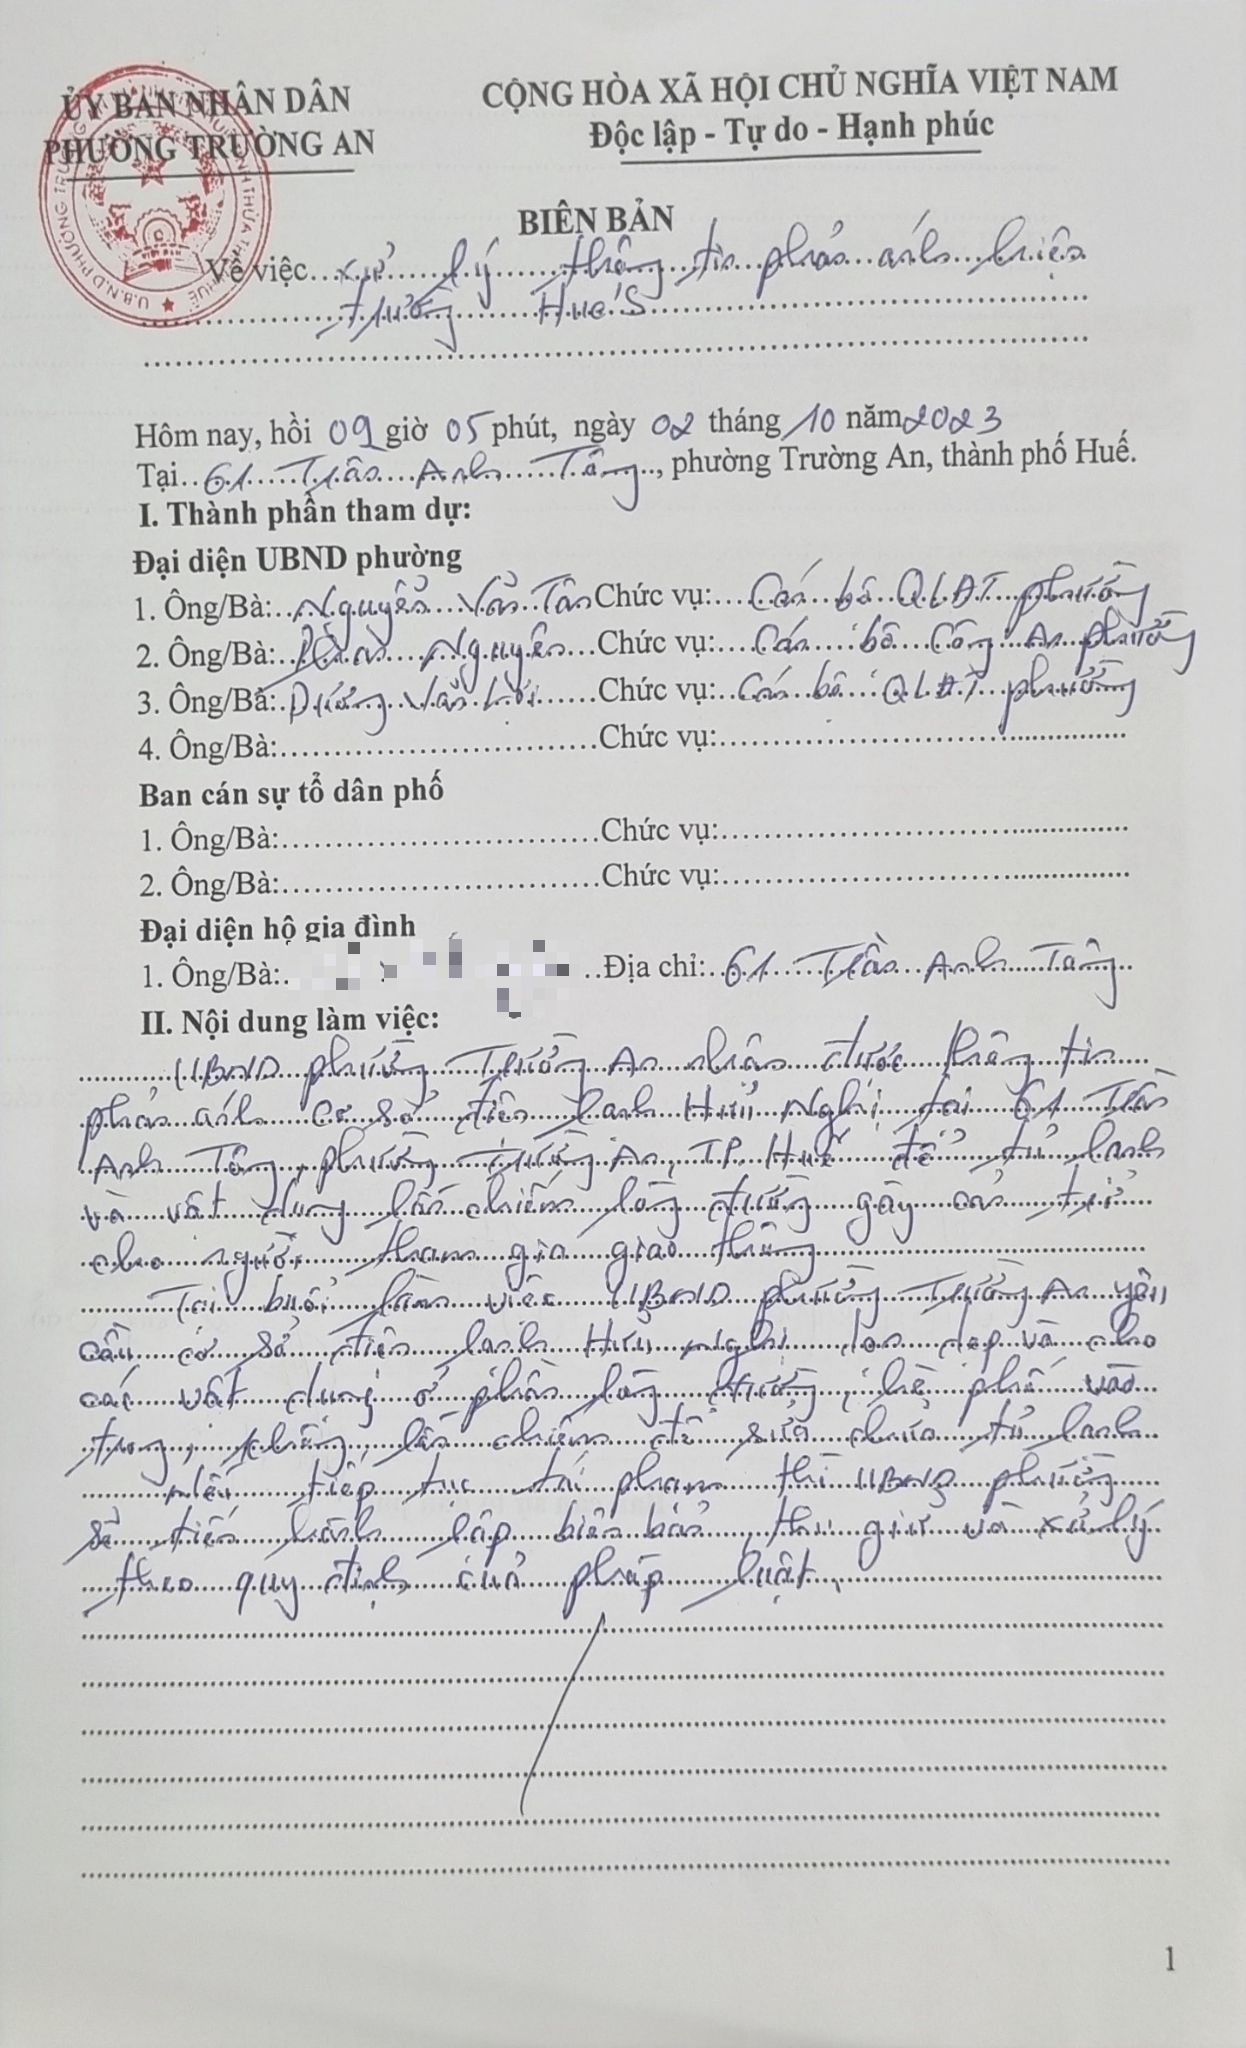 ỦY BAN NHÂN DÂN
PHƯỜNG TRƯỜNG AN
CỘNG HÒA XÃ HỘI CHỦ NGHĨA VIỆT NAM
Độc lập - Tự do - Hạnh phúc
BIÊN BẢN
Về việc xử lý thông tin phản ánh hiện
trường Hue S
Hôm nay, hồi 09 giờ 05 phút, ngày 02 tháng 10 năm 2023
Tại 61 Trần Anh Tông, phường Trường An, thành phố Huế.
I. Thành phần tham dự:
Đại diện UBND phường
1. Ông/Bà: Nguyễn Văn Tân Chức vụ: Cán bộ QLĐT phường
2. Ông/Bà: Nguyên Chức vụ: Cán bộ Công An phường
3. Ông/Bà: Dương Văn Lợi Chức vụ: Cán bộ QLĐT phường
4. Ông/Bà: Chức vụ:
Ban cán sự tổ dân phố
1. Ông/Bà: Chức vụ:
2. Ông/Bà: Chức vụ:
Đại diện hộ gia đình
1. Ông/Bà: Địa chỉ: 61 Trần Anh Tông
II. Nội dung làm việc:
UBND phường Trường An nhận được thông tin
phản ánh cơ sở điện lạnh Hữu Nghị tại 61 Trần
Anh Tông, phường Trường An, TP. Huế để tủ lạnh
và vật dụng lấn chiếm lòng đường gây cản trở
cho người tham gia giao thông
Tại buổi làm việc UBND phường Trường An yêu
cầu cơ sở điện lạnh Hữu Nghị dọn dẹp và cho
các vật dụng ở phần lòng đường, hè phố vào
trong, không lấn chiếm để sửa chữa tủ lạnh
nếu tiếp tục tái phạm thì UBND phường
sẽ tiến hành lập biên bản, thu giữ và xử lý
theo quy định của pháp luật.
1